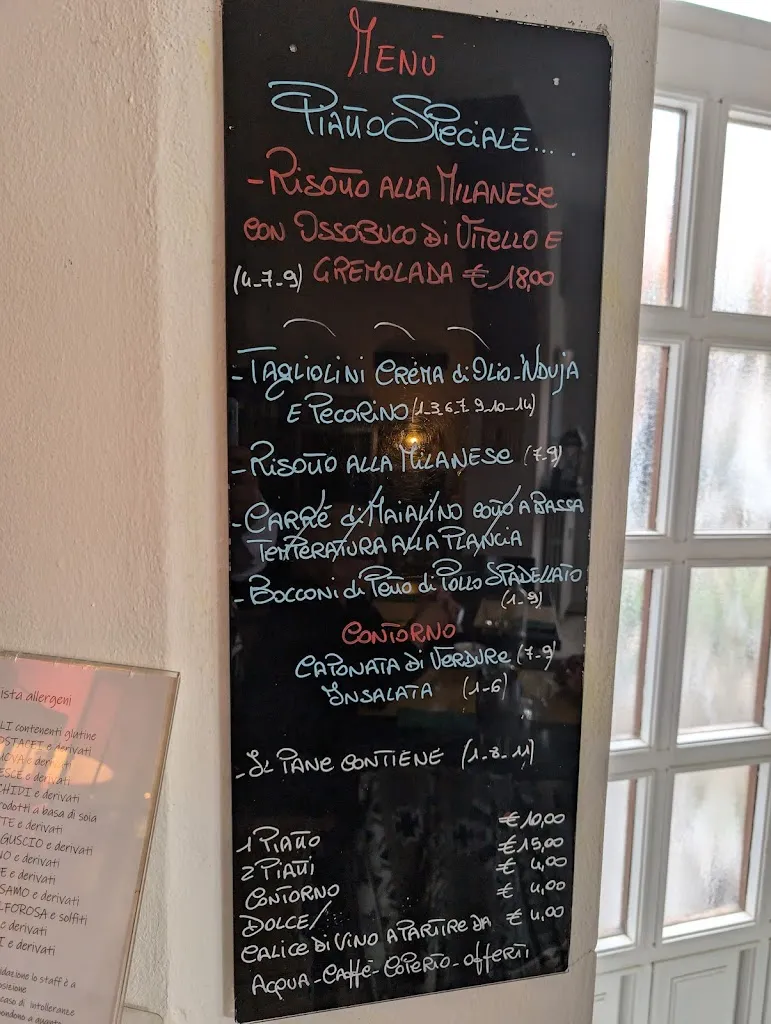 MENÙ
PIATTO SPECIALE....
-RISOTTO ALLA MILANESE
CON OSSOBUCO DI VITELLO E
(4-7-9) GREMOLADA € 18,00
-TAGLIOLINI CREMA di OLIO-NDUJA
E PECORINO (1-3,6,7 9-10-14)
-RISOTTO ALLA MILANESE (7-9)
-CARRÉ di MAIALINO COTTO A BASSA
TEMPERATURA ALLA PLANCIA
-BOCCONI di PETTO di POLLO SPADELLATO
(1-9)
CONTORNO
CAPONATA DI VERDURE (7-9)
INSALATA (1-6)
-IL PANE CONTIENE (1-8-11)
1 PIATTO € 10,00
2 PIATTI € 15,00
CONTORNO € 4,00
DOLCE/ € 4,00
CALICE DI VINO A PARTIRE DA € 4,00
ACQUA-CAFFÈ-COPERTO-OFFERTI
ista allergeni
LI contenenti glutine
OSTACEI e derivati
UOVA e derivati
ESCE e derivati
CHIDI e derivati
rodotti a basa di soia
TTE e derivati
GUSCIO e derivati
NO e derivati
E e derivati
SAMO e derivati
LFOROSA e solfiti
e derivati
I e derivati
idazione lo staff è a
osizione
caso di intolleranze